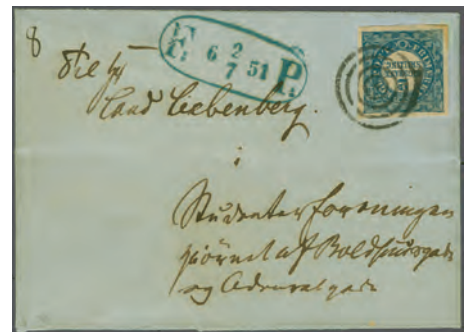 8
F: 6 2/7 51 P.
Til Hr
Cand Liebenberg.
i
Studenterforeningen
hjörnet af Boldhuusgade
og Admiralgade